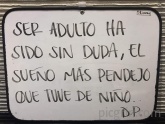 SER ADULTO HA
SIDO SIN DUDA, EL
SUEÑO MÁS PENDEJO
QUE TUVE DE NIÑO.
D.P.